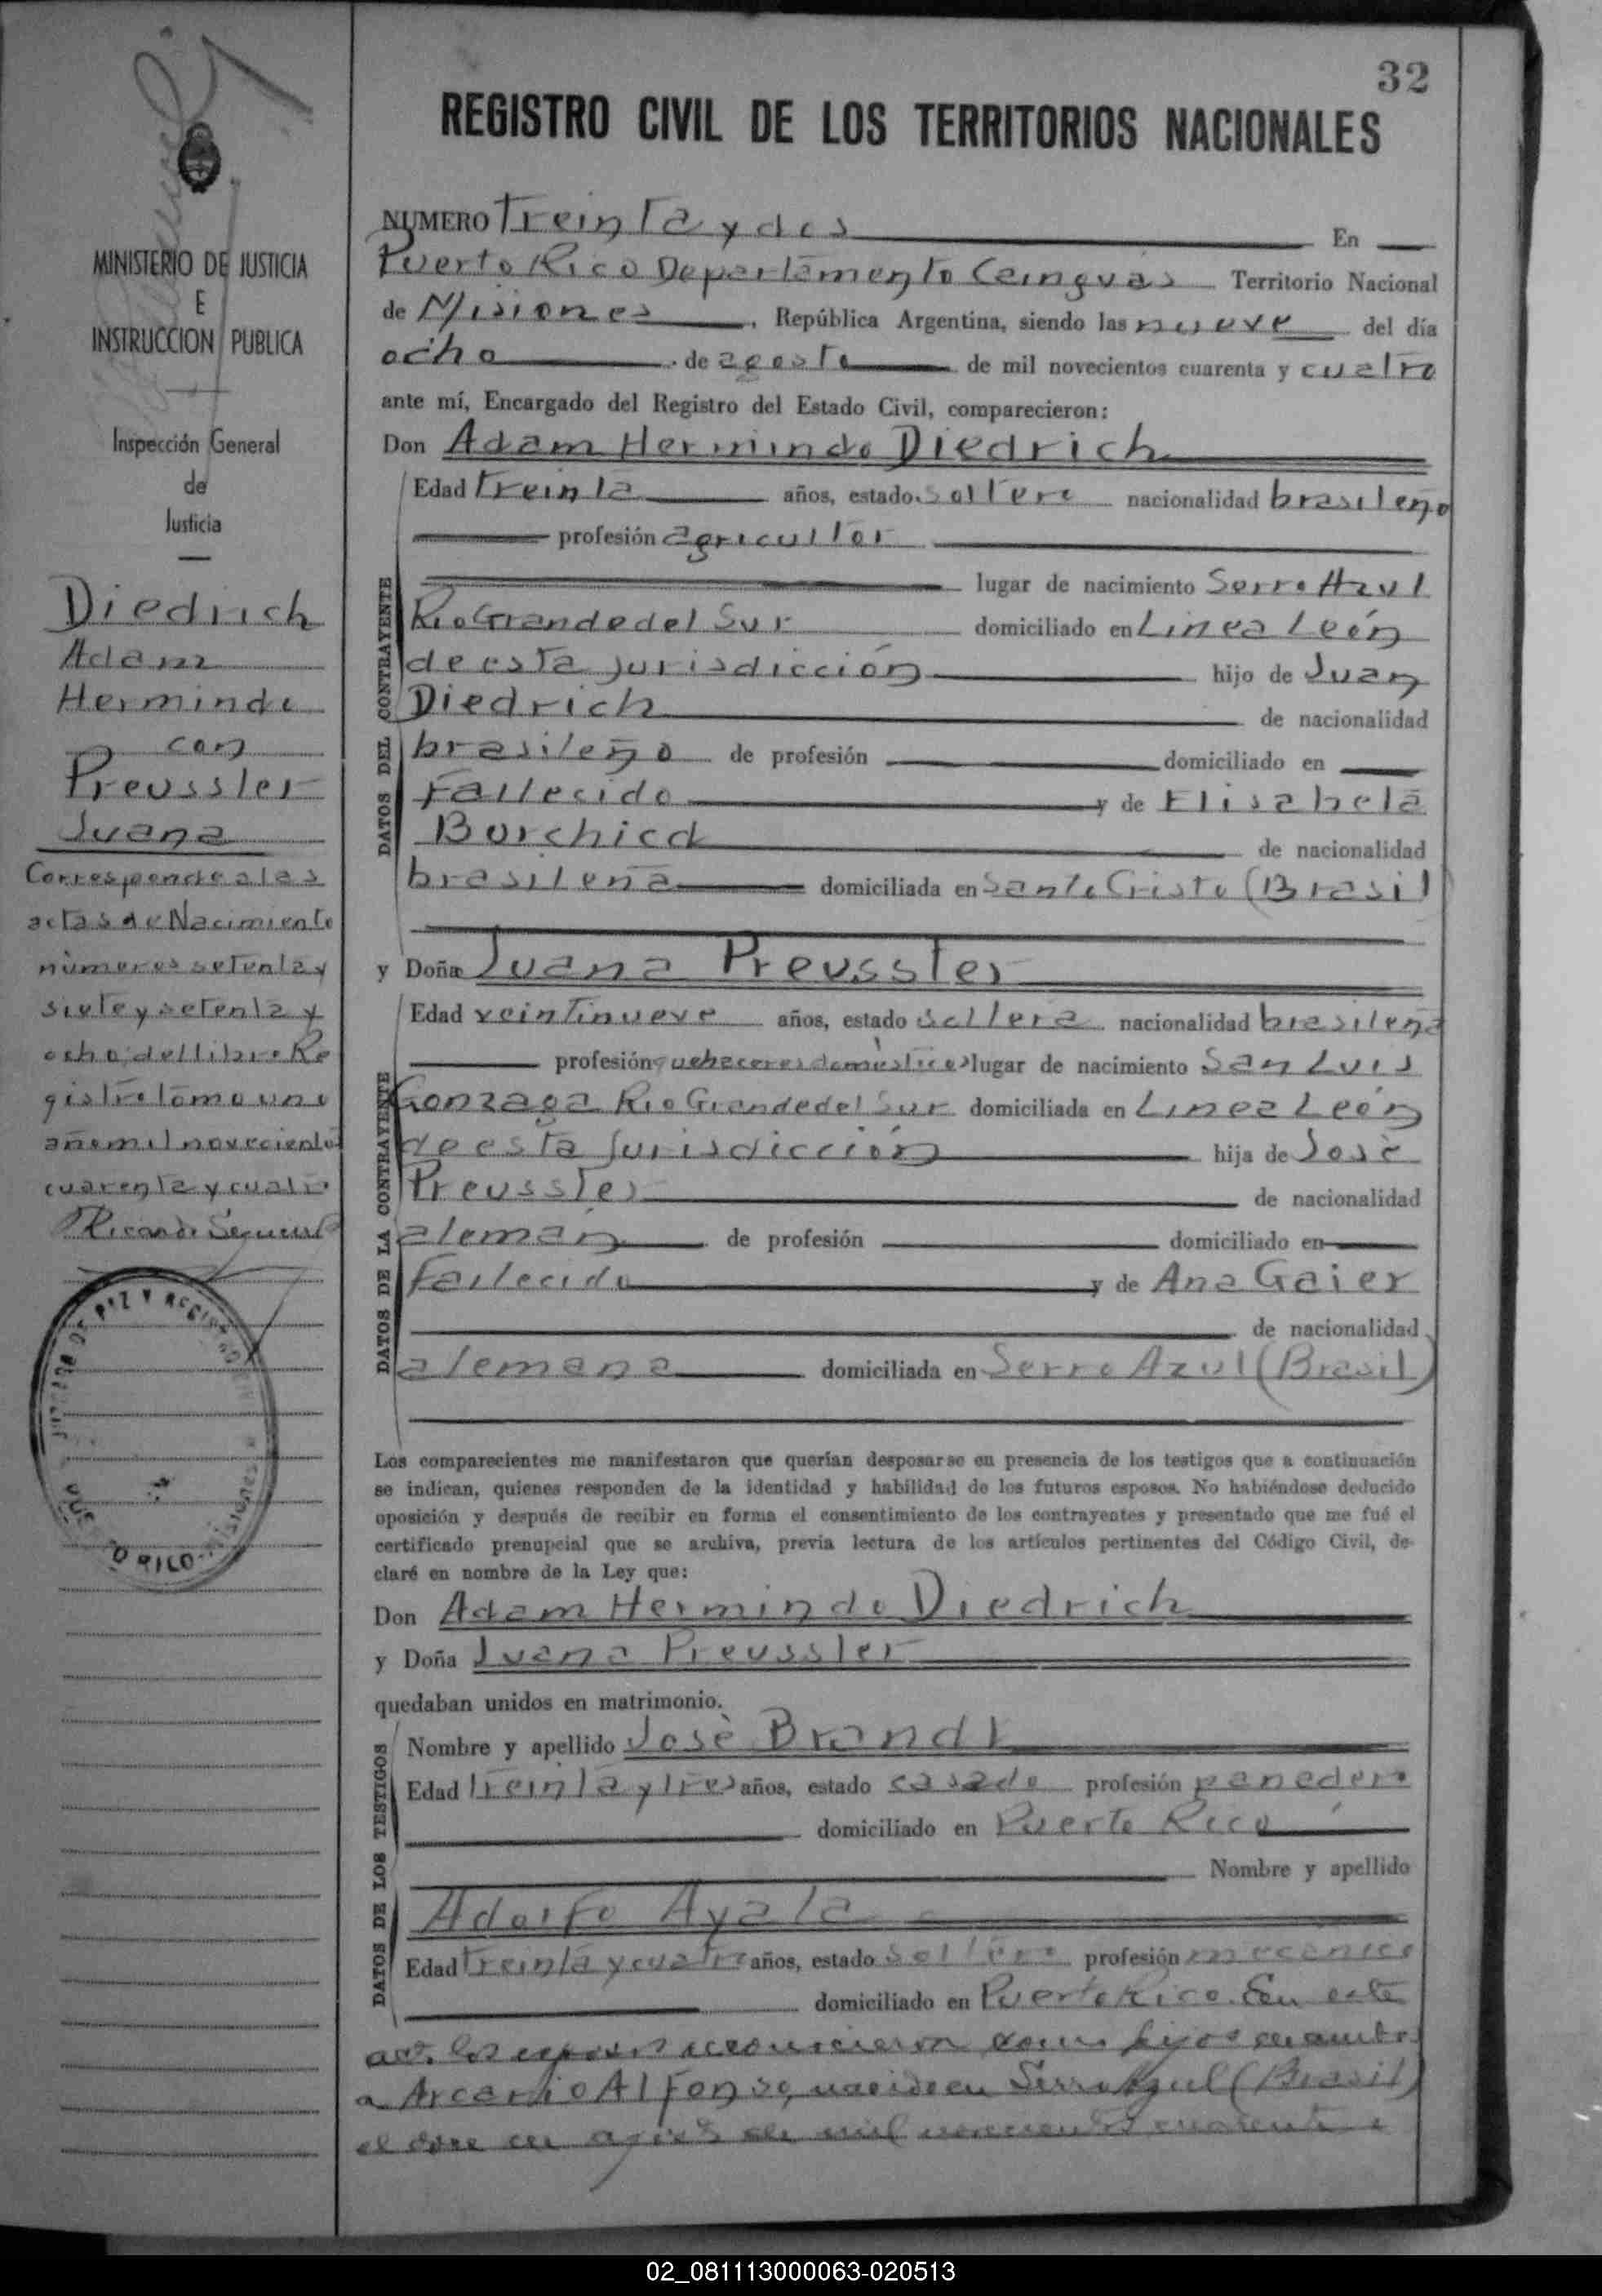 32
REGISTRO CIVIL DE LOS TERRITORIOS NACIONALES
MINISTERIO DE JUSTICIA
E
INSTRUCCION PUBLICA
Inspección General
de
Justicia
Diedrich
Adam
Hermindo
con
Preussler
Juana
Corresponde a las
actas de Nacimiento
números setenta y
siete y setenta y
ocho, del libro Re
gistro tomo uno
año mil novecientos
cuarenta y cuatro
Ricardo
NUMERO Treinta y dos En
Puerto Rico Departamento Cainguás Territorio Nacional
de Misiones, República Argentina, siendo las nueve del día
ocho de agosto de mil novecientos cuarenta y cuatro
ante mí, Encargado del Registro del Estado Civil, comparecieron:
Don Adam Hermindo Diedrich
DATOS DEL CONTRAYENTE
Edad treinta años, estado soltero nacionalidad brasileño
profesión agricultor
lugar de nacimiento Serro Azul
Rio Grande del Sur domiciliado en Linea León
de esta jurisdicción hijo de Juan
Diedrich de nacionalidad
brasileño de profesión domiciliado en
Fallecido y de Elisabeta
Borchied de nacionalidad
brasileña domiciliada en Santo Cristo (Brasil
y Doña Juana Preussler
DATOS DE LA CONTRAYENTE
Edad veintinueve años, estado soltera nacionalidad brasileña
profesión quehaceres domésticos lugar de nacimiento San Luis
Gonzaga Rio Grande del Sur domiciliada en Linea León
de esta jurisdicción hija de José
Preussler de nacionalidad
alemán de profesión domiciliado en
Fallecido y de Ana Gaier
de nacionalidad
alemana domiciliada en Serro Azul (Brasil)
Los comparecientes me manifestaron que querían desposarse en presencia de los testigos que a continuación
se indican, quienes responden de la identidad y habilidad de los futuros esposos. No habiéndose deducido
oposición y después de recibir en forma el consentimiento de los contrayentes y presentado que me fué el
certificado prenupcial que se archiva, previa lectura de los artículos pertinentes del Código Civil, de-
claré en nombre de la Ley que:
Don Adam Hermindo Diedrich
y Doña Juana Preussler
quedaban unidos en matrimonio.
DATOS DE LOS TESTIGOS
Nombre y apellido José Brandt
Edad treinta y tres años, estado casado profesión panadero
domiciliado en Puerto Rico
Nombre y apellido
Adolfo Ayala
Edad treinta y cuatro años, estado soltero profesión mecánico
domiciliado en Puerto Rico. En este
acto los esposos reconocieron como hijos de ambos
a Arcario Alfonso, nacido en Serro Azul (Brasil)
el doce de de mil novecientos cuarenta
02_081113000063-020513